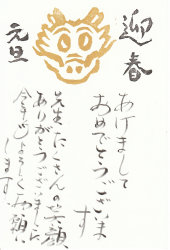 迎春
元旦
あけまして
おめでとうございます
先生たくさんの笑顔、
ありがとうございました
今年もよろしくお願い
します